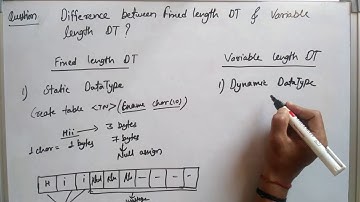 Question: Difference between Fixed length DT & Variable
length DT ?
Fixed length DT
1) Static DataType
Create table <TN> (Ename char(10))
Hii → 3 bytes
1 char = 1 bytes 7 bytes
Null assign
H i i Null Nu Nu - - - -
Variable length DT
1) Dynamic DataType